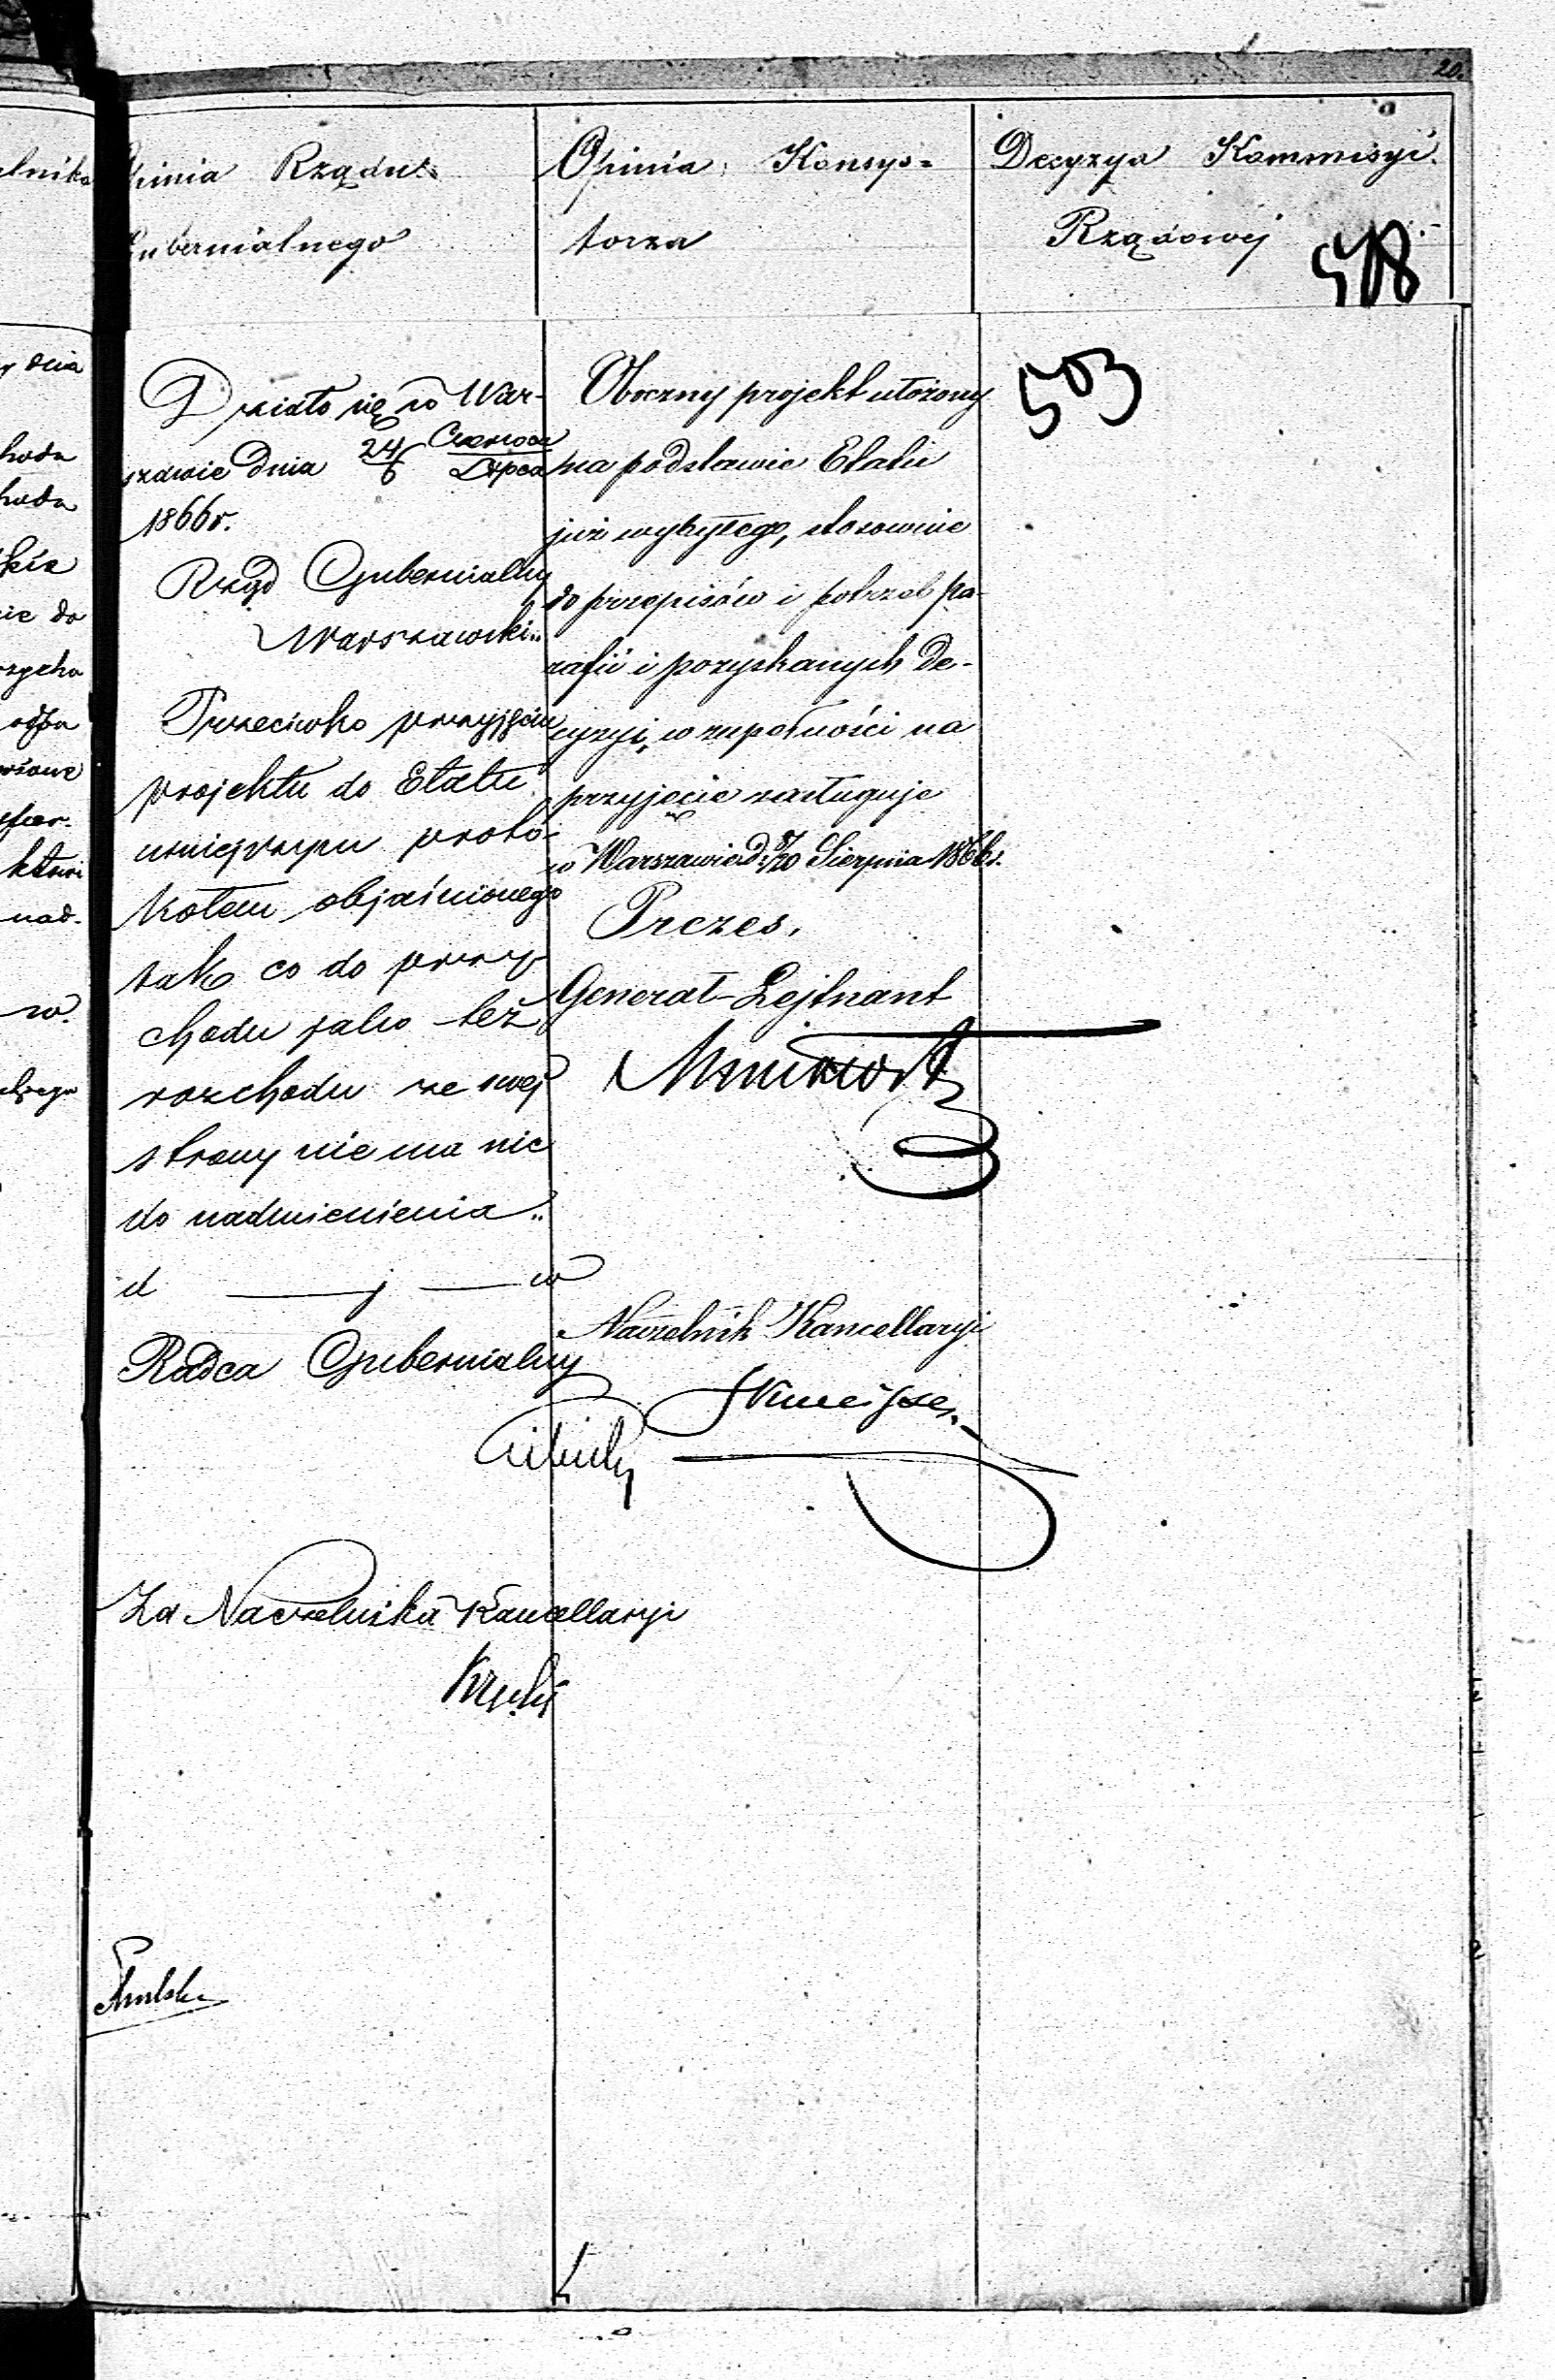 20.
Opinia Rządu
Gubernialnego
Opinia Konsys=
torza
Decyzya Kommisyi
Rządowej
503
Działo się w War-
szawie dnia 24/6 Czerwca/Lipca
1866 r.
Rząd Gubernialny
Warszawski
Przeciwko przyjęciu
projektu do Etatu
niniejszym proto-
kołem objaśnionego
tak co do przy-
chodu jako też
rozchodu ze swej
strony nie ma nic
do nadmienienia
Radca Gubernialny
Za Naczelnika Kancellaryi
Oboczny projekt ułożony
na podstawie Etatu
już wybyłego, stosownie
do przepisów i potrzeb pa-
rafii i pozyskanych De-
cyzyi, w zupełności na
przyjęcie zasługuje
w Warszawie d. 8/20 Sierpnia 1866 r.
Prezes,
Generał-Lejtnant
Naczelnik Kancellaryi